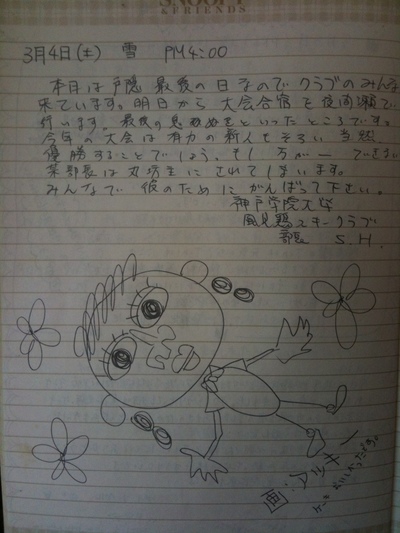 SNOOPY
& FRIENDS
3月4日(土) 雪 PM4:00
本日は戸隠最後の日なのでクラブのみんな
来ています。明日から大会合宿を夜間瀬で
行います。最後の息抜きといったところです。
今年の大会は有力の新人もそろい当然
優勝することでしょう。もし万が一できない
某部長は丸坊主にされてしまいます。
みんなで彼のためにがんばって下さい。
神戸学院大学
風見鶏スキークラブ
部長 S.H.
画:アルキン
ケーキおいしかったです。